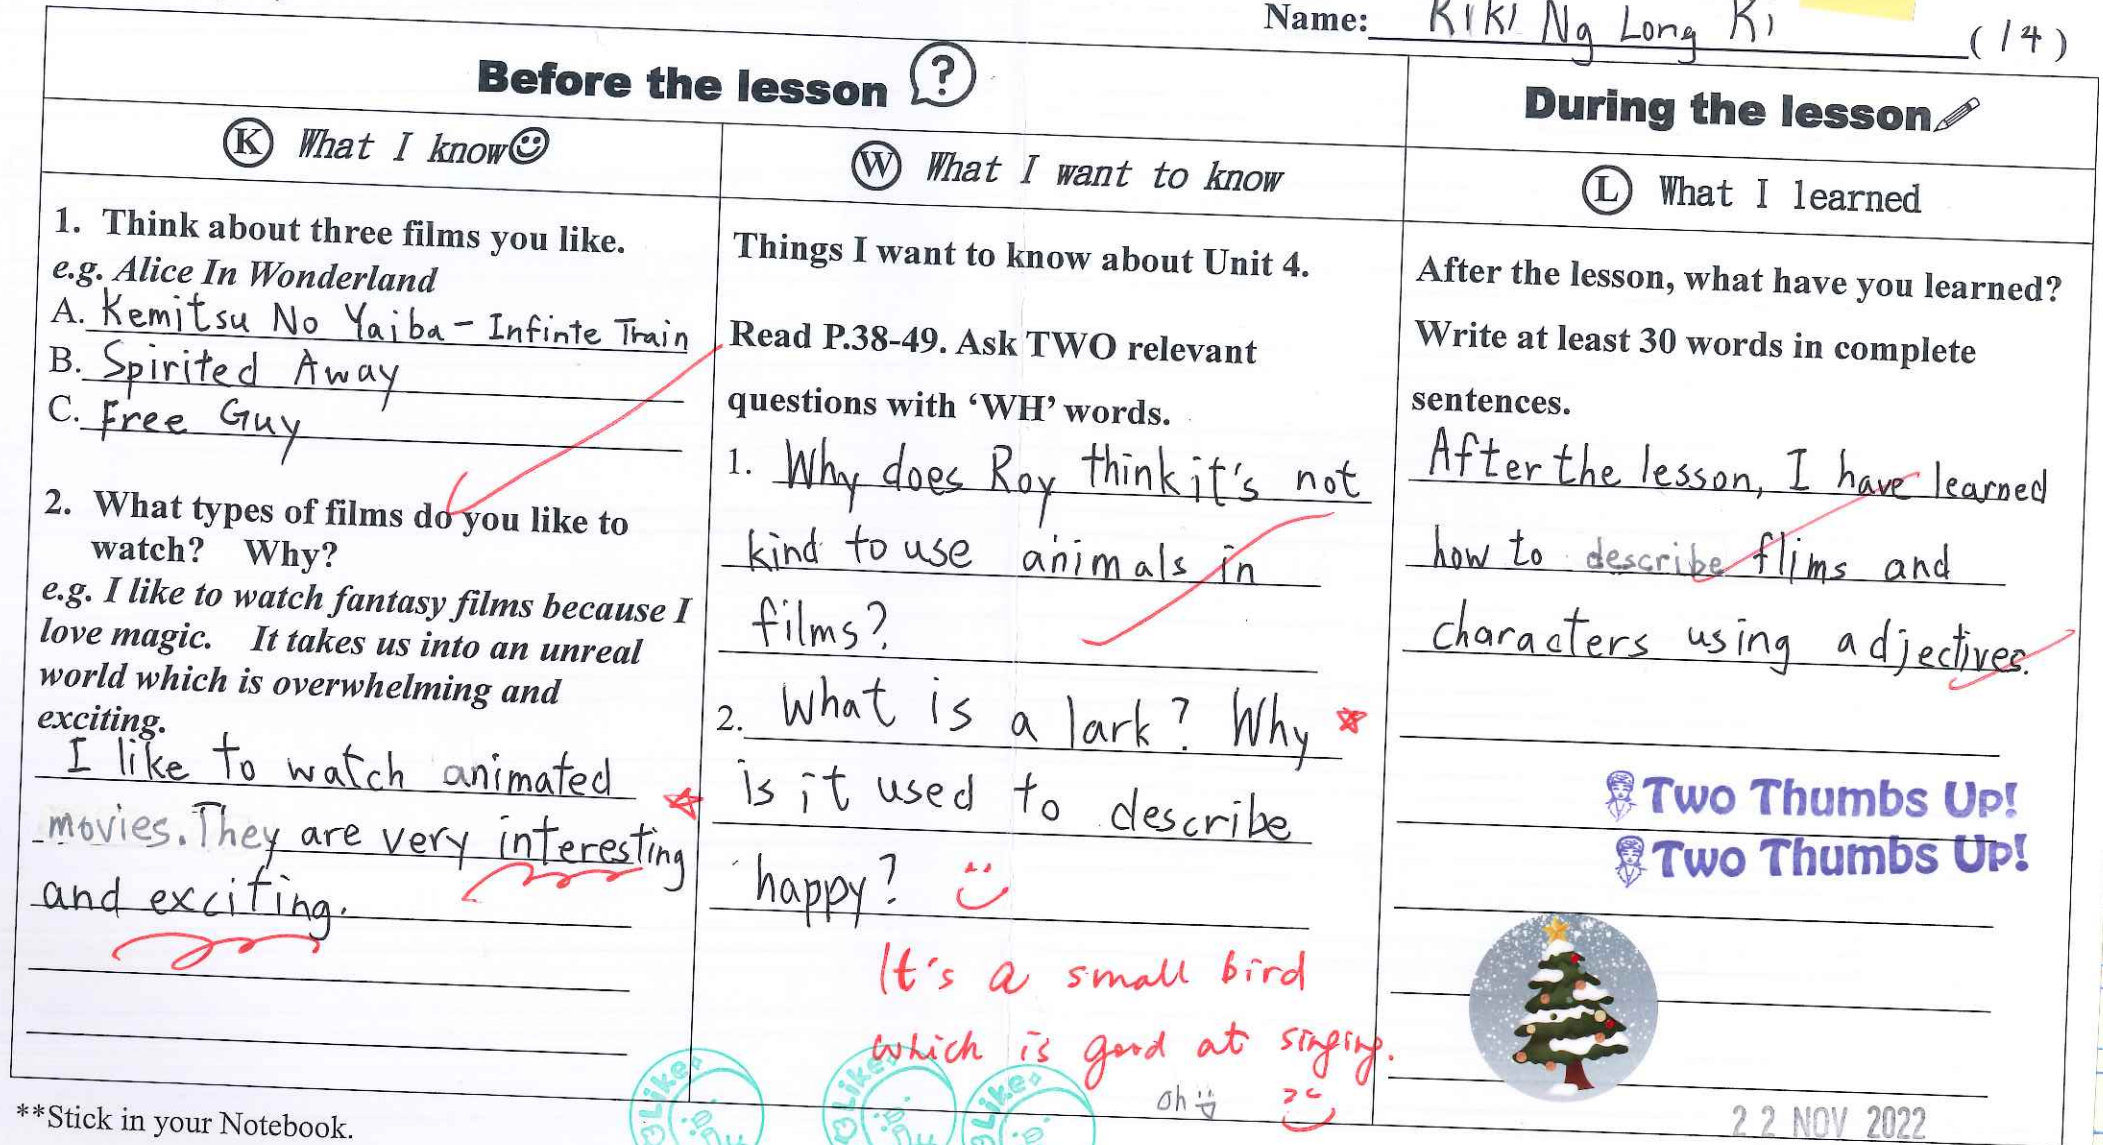 Name: Kiki Ng Long Ki (14)
Before the lesson ?
During the lesson
K What I know
W What I want to know
L What I learned
1. Think about three films you like.
e.g. Alice In Wonderland
A. Kemitsu No Yaiba - Infinte Train
B. Spirited Away
C. Free Guy
2. What types of films do you like to
watch? Why?
e.g. I like to watch fantasy films because I
love magic. It takes us into an unreal
world which is overwhelming and
exciting.
I like to watch animated
movies. They are very interesting
and exciting.
Things I want to know about Unit 4.
Read P.38-49. Ask TWO relevant
questions with ‘WH’ words.
1. Why does Roy think it's not
kind to use animals in
films?
2. What is a lark? Why
is it used to describe
happy?
It's a small bird
which is good at singing.
oh
After the lesson, what have you learned?
Write at least 30 words in complete
sentences.
After the lesson, I have learned
how to describe flims and
characters using adjectives.
Two Thumbs Up!
Two Thumbs Up!
Like
Like
Like
22 NOV 2022
**Stick in your Notebook.